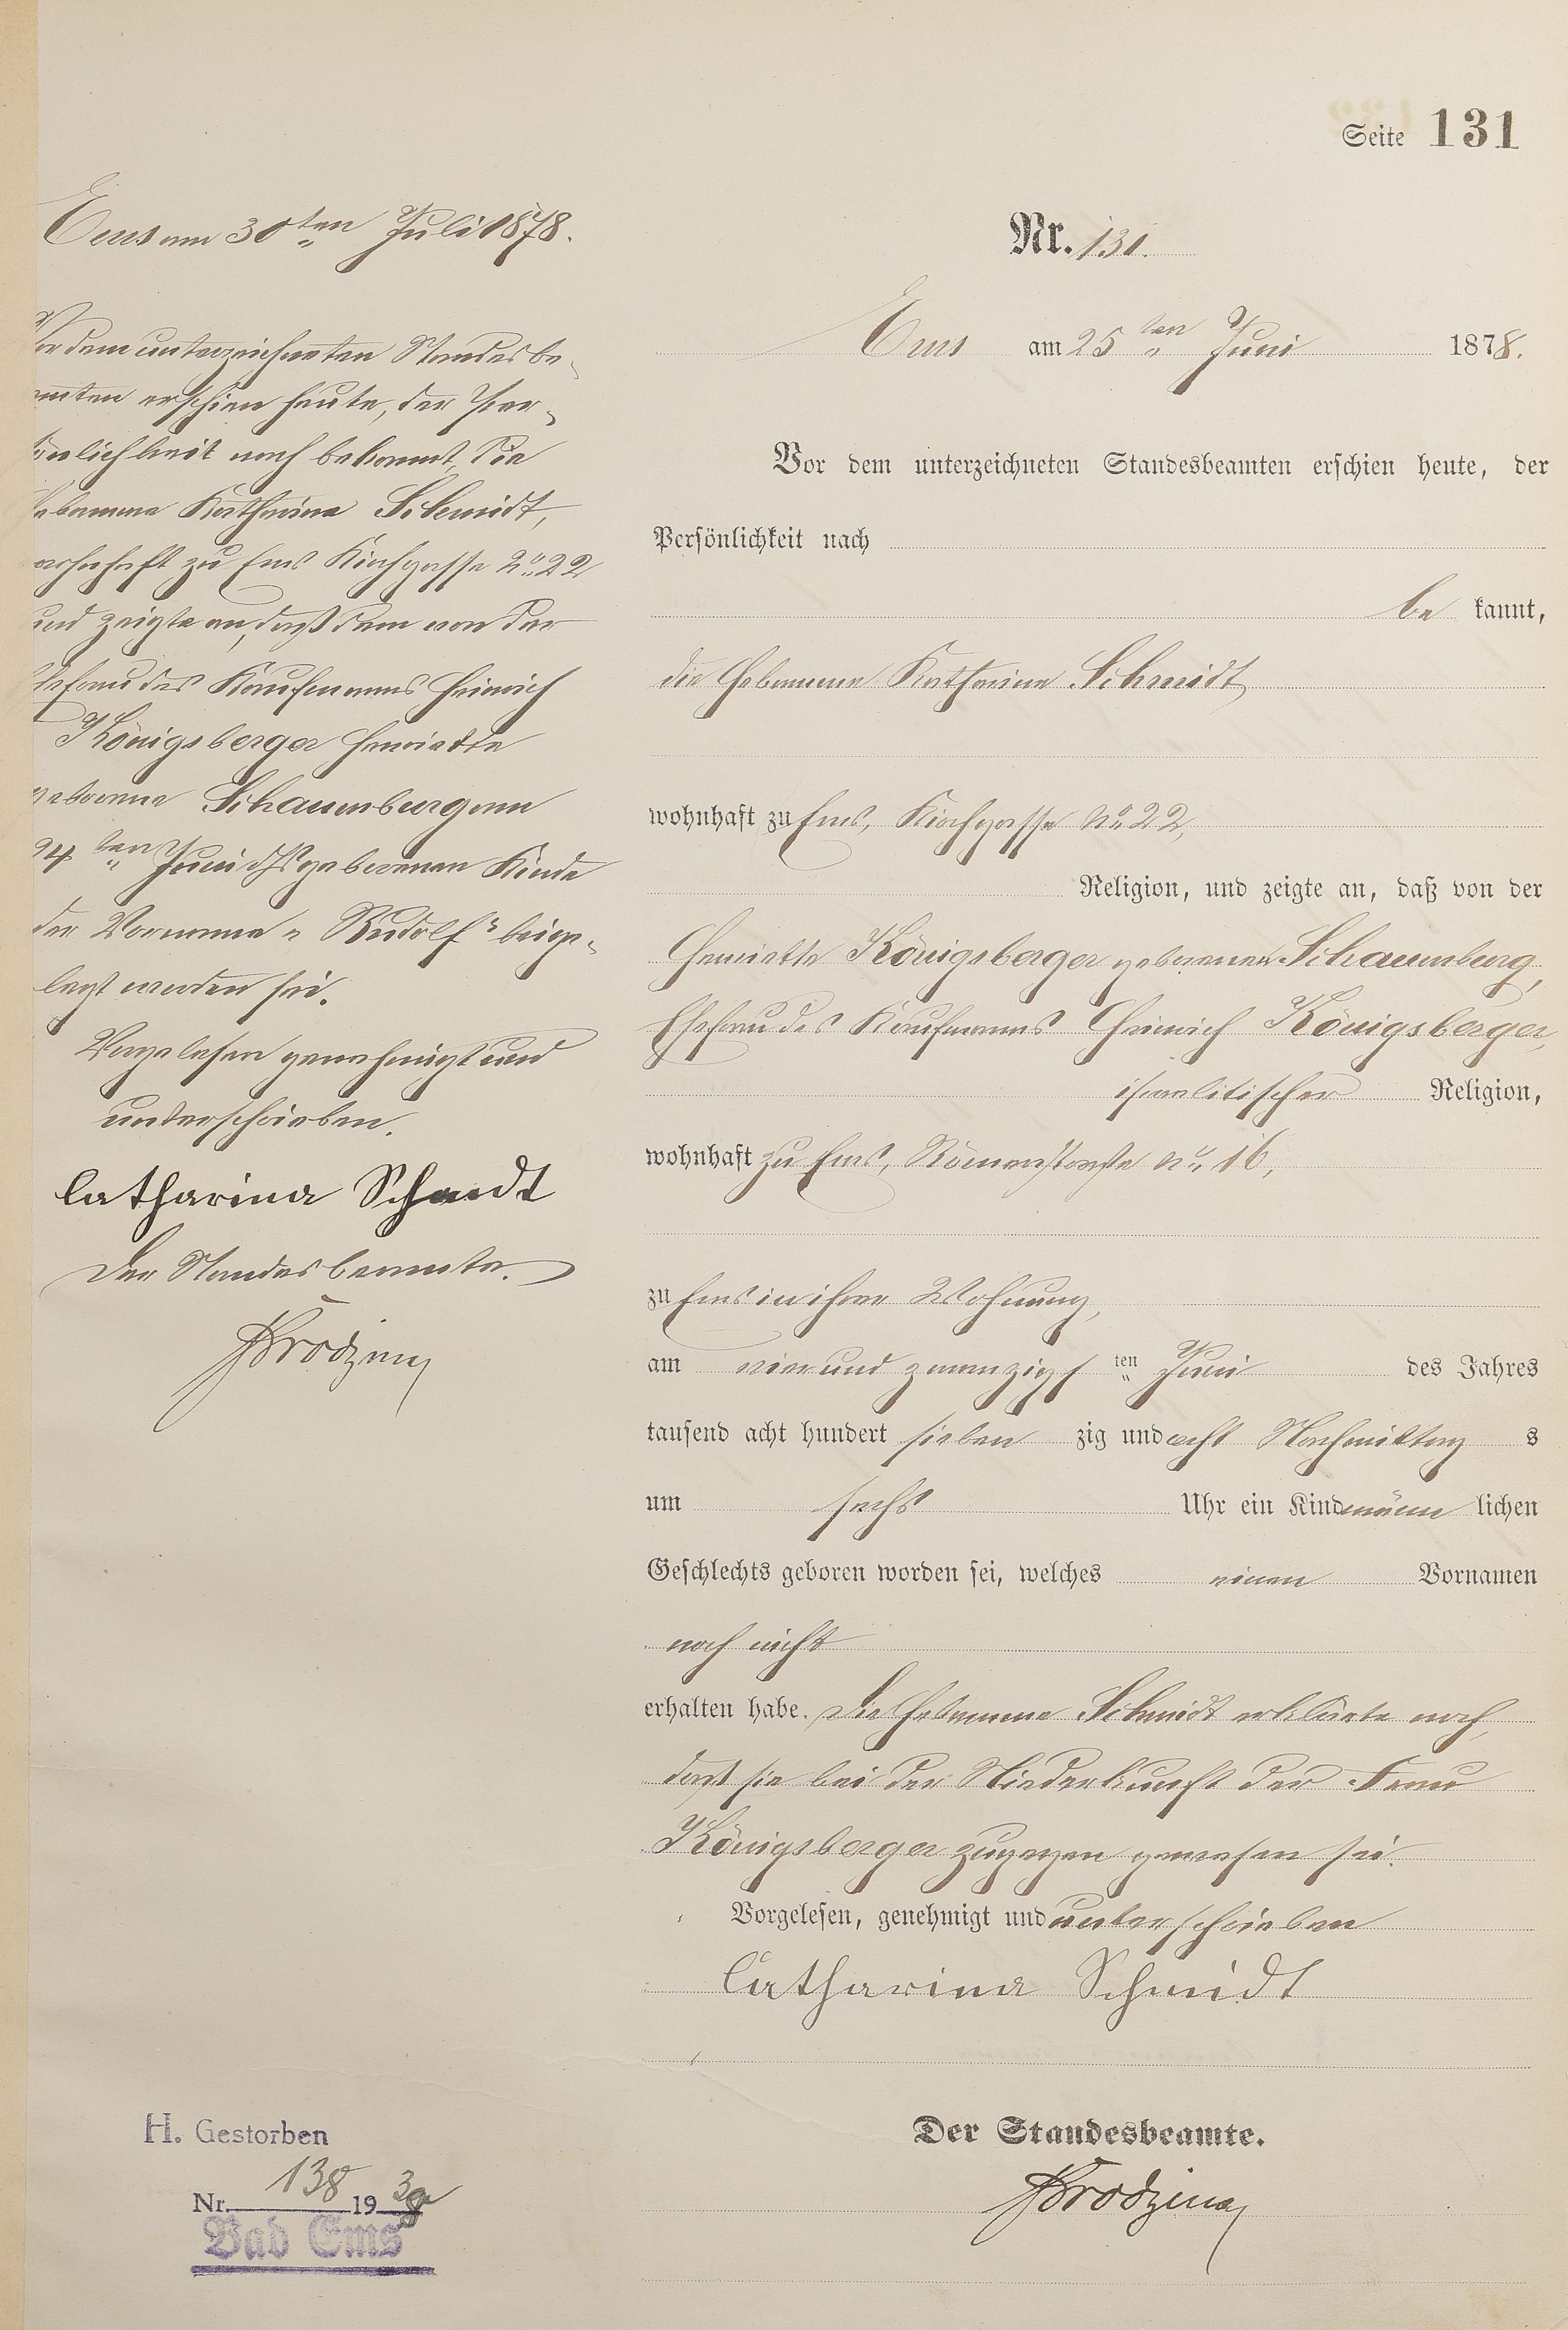 Seite 131
Ems am 30ten Juli 1878.
Vor dem unterzeichneten Standesbe-
amten erschien heute, der Per-
sönlichkeit nach bekannt, die
Hebamme Katharina Schmidt,
wohnhaft zu Ems Kirchgasse No 22
und zeigte an, daß dem von der
Ehefrau des Kaufmanns Heinrich
Königsberger Henriette
geborene Schauenburg am
24ten Juni d Js geborenen Kinde
der Vorname „Rudolf" beige-
legt worden sei.
Vorgelesen genehmigt und
unterschrieben.
Catharina Schmidt
Der Standesbeamte.
Nr. 131.
Ems am 25ten Juni 1878.
Vor dem unterzeichneten Standesbeamten erschien heute, der
Persönlichkeit nach
be kannt,
die Hebamme Katharina Schmidt,
wohnhaft zu Ems, Kirchgasse No 22,
Religion, und zeigte an, daß von der
Henriette Königsberger geborenen Schauenburg,
Ehefrau des Kaufmanns Heinrich Königsberger,
israelitischer Religion,
wohnhaft zu Ems, Römerstraße No 16,
zu Ems in ihrer Wohnung,
am vier und zwanzigs ten Juni des Jahres
tausend acht hundert sieben zig und acht Nachmittag s
um sechs Uhr ein Kind männ lichen
Geschlechts geboren worden sei, welches einen Vornamen
noch nicht
erhalten habe. Die Hebamme Schmidt erklärte noch,
daß sie bei der Niederkunft der Frau
Königsberger zugegen gewesen sei.
Vorgelesen, genehmigt und unterschrieben
Catharina Schmidt
Der Standesbeamte.
H. Gestorben
Nr. 138 19
Bad Ems